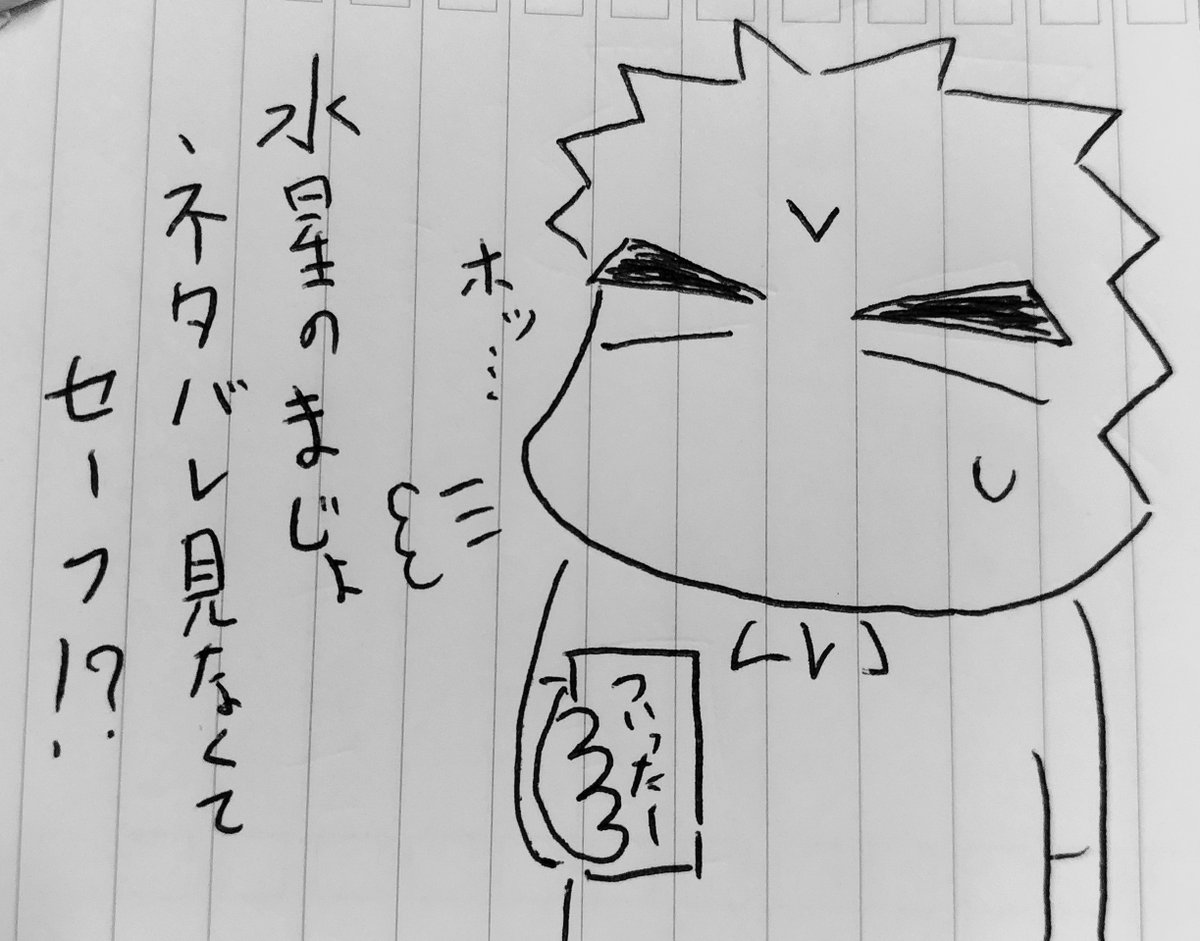 ついったー
ホッ…
水星のまじょ
、ネタバレ見なくて
セーフ!?